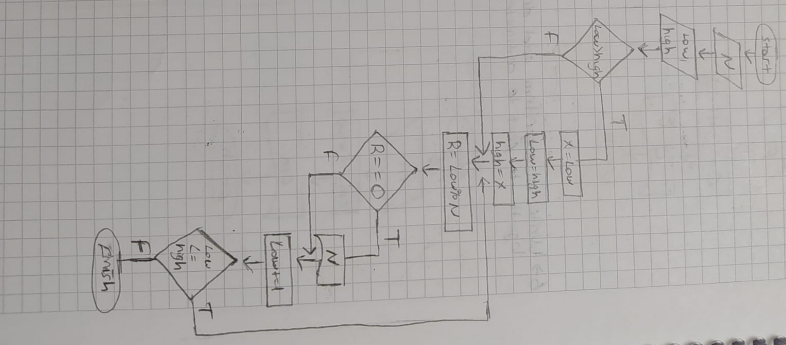 Start
N
Low,
high
Low>high
T
F
X=Low
Low=high
high=X
R=Low%N
R==0
T
F
N
Low+=1
Low
<=
high
T
F
finish